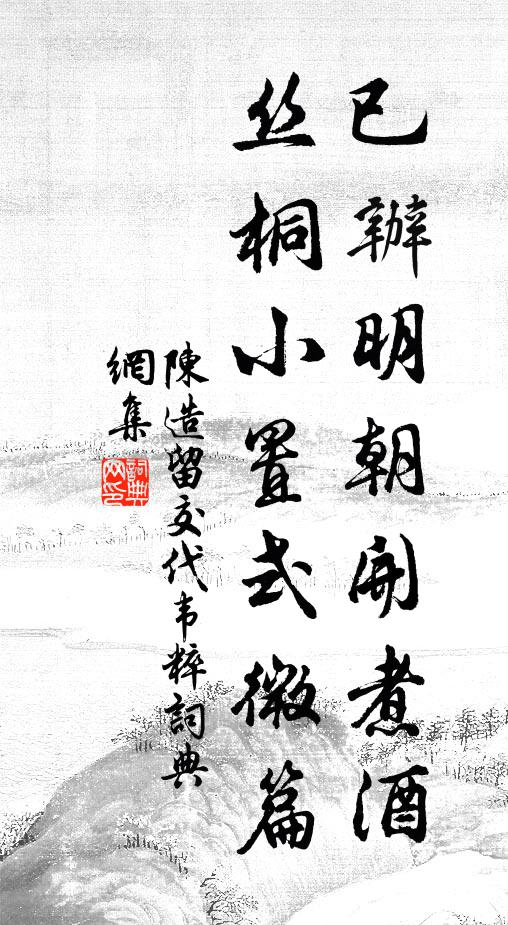 已辦明朝開煮酒
丝桐小置式微篇
陳造留交代韦粹詞典
網集
詞典
网印